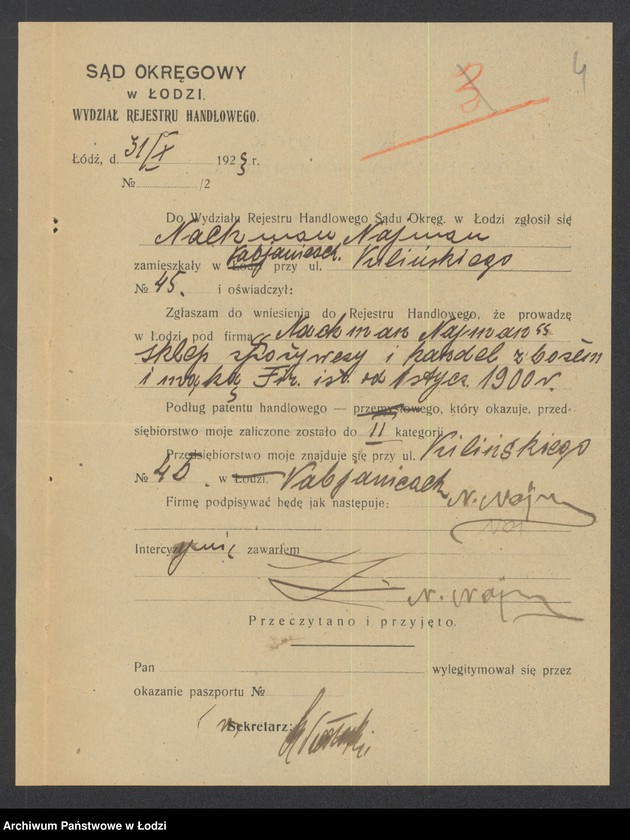 4
3
SĄD OKRĘGOWY
w ŁODZI.
WYDZIAŁ REJESTRU HANDLOWEGO.
Łódź, d. 31/X 1923 r.
№ /2
Do Wydziału Rejestru Handlowego Sądu Okręg. w Łodzi zgłosił się
Nachman Najman
zamieszkały w Łodzi Pabjanicach. przy ul. Kilińskiego
№ 45. i oświadczył:
Zgłaszam do wniesienia do Rejestru Handlowego, że prowadzę
w Łodzi pod firmą „Nachman Najman"
sklep spożywczy i handel zbożem
i mąką Fir. ist. od 1 stycz. 1900 r.
Podług patentu handlowego — przemysłowego, który okazuje, przed-
siębiorstwo moje zaliczone zostało do II kategorji
Przedsiębiorstwo moje znajduje się przy ul. Kilińskiego
№ 45. w Łodzi. Pabjanicach
Firmę podpisywać będę jak następuje: N. Najm
Intercyzy nie zawarłem
N. Najm
Przeczytano i przyjęto.
Pan wylegitymował się przez
okazanie paszportu №
Sekretarz:
Archiwum Państwowe w Łodzi